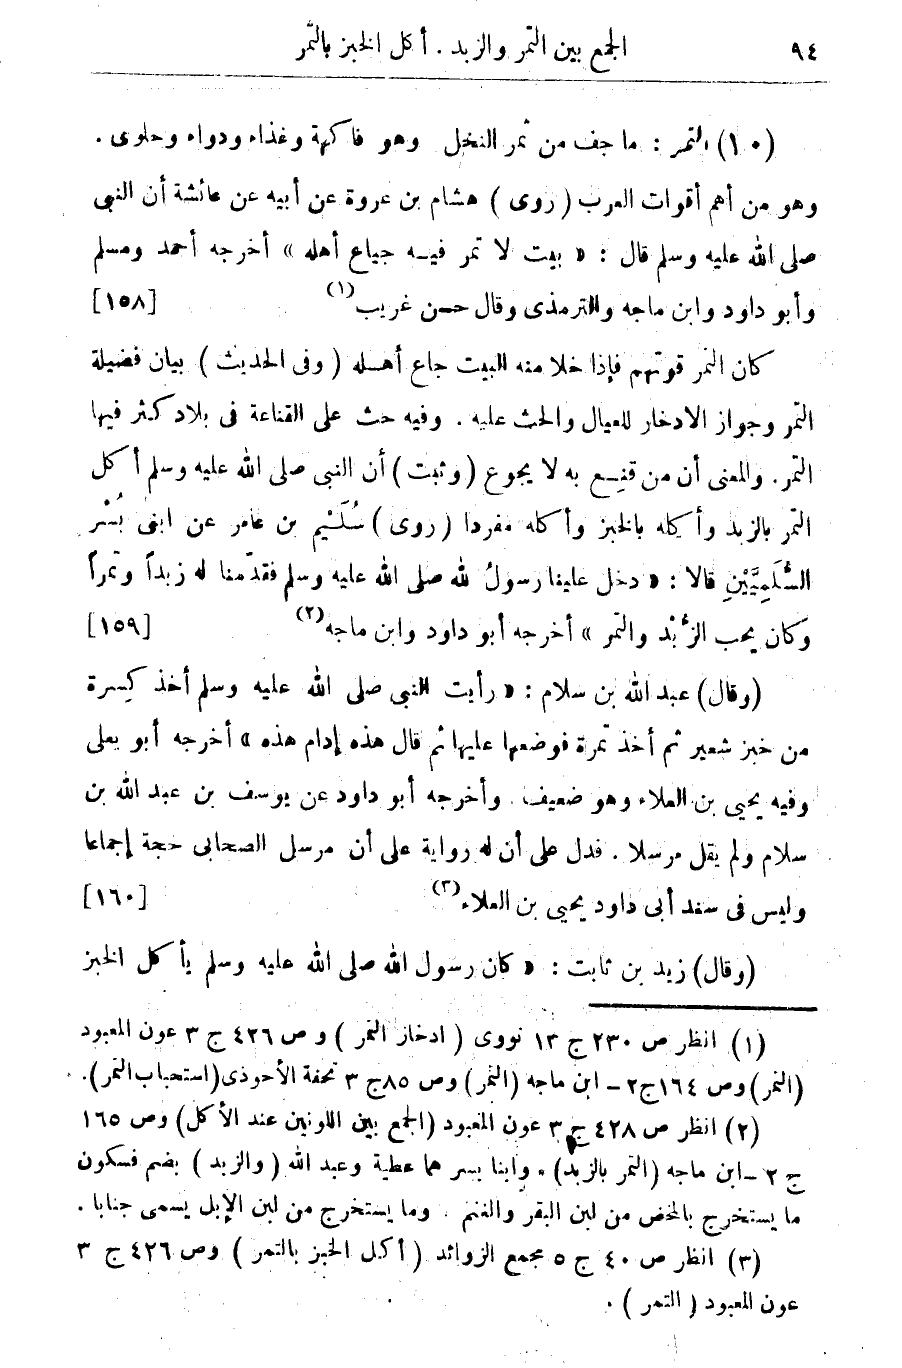 ٩٤ الجمع بين التمر والزبد . أكل الخبز بالتمر
(١٠) التمر : ما جف من ثمر النخل وهو فاكهة وغذاء ودواء وحلوى .
وهو من أهم أقوات العرب ( روى ) هشام بن عروة عن أبيه عن عائشة أن النبى
صلى الله عليه وسلم قال : « بيت لا تمر فيه جياع أهله » أخرجه أحمد ومسلم
وأبو داود وابن ماجه والترمذى وقال حسن غريب (١) [١٥٨]
كان التمر قوتهم فإذا خلا منه البيت جاع أهله ( وفى الحديث ) بيان فضيلة
التمر وجواز الادخار للعيال والحث عليه . وفيه حث على القناعة فى بلاد كثر فيها
التمر . والمعنى أن من قنِع به لا يجوع ( وثبت ) أن النبى صلى الله عليه وسلم أكل
التمر بالزبد وأكله بالخبز وأكله مفردا ( روى ) سُلَيْم بن عامر عن ابنى بُسْر
السُّلَمِيَّيْنِ قالا : « دخل علينا رسولُ لله صلى الله عليه وسلم فقدّمنا له زبداً وتمراً
وكان يحب الزُّبْد والتمر » أخرجه أبو داود وابن ماجه (٢) [١٥٩]
(وقال) عبد الله بن سلام : « رأيت النبى صلى الله عليه وسلم أخذ كِسرة
من خبز شعير ثم أخذ تمرة فوضعها عليها ثم قال هذه إدام هذه » أخرجه أبو يعلى
وفيه يحيى بن العلاء وهو ضعيف . وأخرجه أبو داود عن يوسف بن عبد الله بن
سلام ولم يقل مرسلا . فدل على أن له رواية على أن مرسل الصحابى حجة إجماعا
وليس فى سند أبى داود يحيى بن العلاء (٣) [١٦٠]
(وقال) زيد بن ثابت : « كان رسول الله صلى الله عليه وسلم يأكل الخبز
(١) انظر ص ٢٣٠ ج ١٣ نووى ( ادخار التمر ) و ص ٤٢٦ ج ٣ عون المعبود
(التمر) وص ١٦٤ ج٢ - ابن ماجه (التمر) وص ٨٥ ج ٣ تحفة الأحوذى (استحباب التمر).
(٢) انظر ص ٤٢٨ ج ٣ عون المعبود (الجمع بين اللونين عند الأكل) وص ١٦٥
ج ٢ - ابن ماجه (التمر بالزبد) . وابنا بسر هما عطية وعبد الله ( والزبد ) بضم فسكون
ما يستخرج بالمخض من لبن البقر والغنم . وما يستخرج من لبن الإبل يسمى جنابا .
(٣) انظر ص ٤٠ ج ٥ مجمع الزوائد ( أكل الخبز بالتمر ) وص ٤٢٦ ج ٣
عون المعبود ( التمر ) .